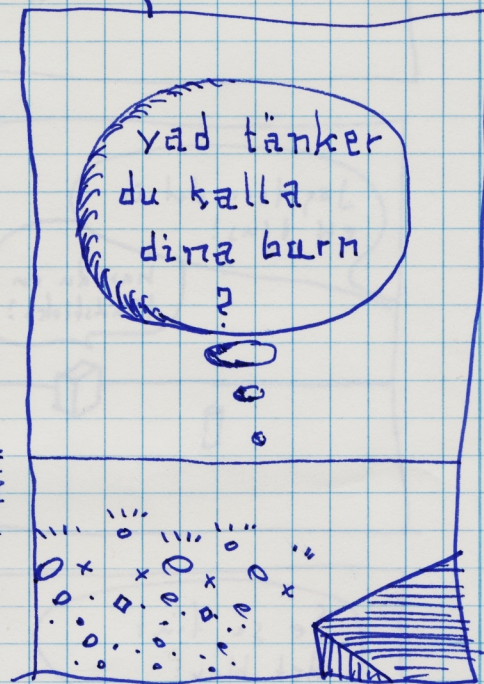 vad tänker
du kalla
dina barn
?